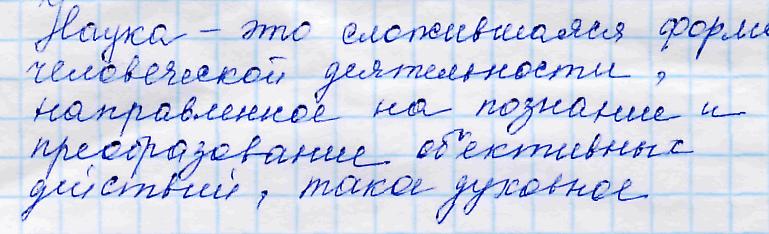 Наука – это сложившаяся форма
человеческой деятельности,
направленное на познание и
преобразование об'ективных
действий, такое духовное